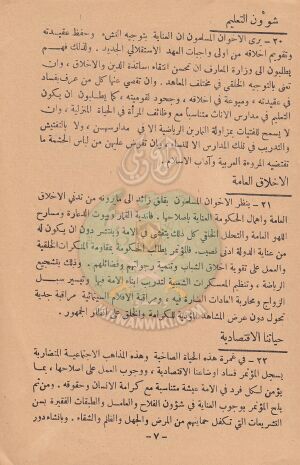 شؤون التعليم
٣٠ - يرى الاخوان المسلمون ان العناية بتوجيه النشء وحفظ عقيدته
وتقويم اخلاقه من اولى واجبات العهد الاستقلالي الجديد . ولذلك فهم
يطلبون الى وزارة المعارف ان تحسن انتقاء اساتذة الدين والاخلاق ، وان
تعنى بالتوجيه الخلقي في مختلف المعاهد . وان تقصي عنها كل من عرف بفساد
في عقيدته ، وميوعة في اخلاقه ، وجحود لقوميته ، كما يطلبون ان يكون
التعليم في مدارس الاناث متناسباً مع وظائف المرأة في الحياة المنزلية ، وان
لا يسمح للفتيات بمزاولة التمارين الرياضية الا في مدارسهن ، ولا بالتفتيش
والتدريب في تلك المدارس الا للسيدات وان تفرض عليهن من لباس الحشمة ما
تقتضيه المروءة العربية وآداب الاسلام .
الاخلاق العامة
٣١ - ينظر الاخوان المسلمون بقلق زائد الى مايرونه من تدني الاخلاق
العامة واهمال الحكومة العناية باصلاحها . فأندية القمار وبيوت الدعارة ومسارح
اللهو العامة والتحلل الخلقي كل ذلك يتفشى في الامة وينتشر دون ان يكون له
من عناية الدولة ادنى نصيب . فالمؤتمر يطالب الحكومة بمقاومة المنكرات الخلقية
والعمل على تقوية اخلاق الشباب وتنمية رجولتهم وفضائلهم . وذلك بتشجيع
الرياضة ، وتنظيم المعسكرات الشعبية لتدريب ابناء الامة فيها وتيسير سبل
الزواج ومحاربة العادات الضارة فيه ، ومراقبة الافلام السينمائية مراقبة جدية
تحول دون عرض المشاهد المؤذية للكرامة والخلق على انظار الجمهور .
حياتنا الاقتصادية
٣٢ - في غمرة هذه الحياة الصاخبة وهذه المذاهب الاجتماعية المتضاربة
يسجل المؤتمر فساد اوضاعنا الاقتصادية ، ووجوب العمل على اصلاحها ، بما
يؤمن لكل فرد في الامة عيشة متناسبة مع كرامة الانسان وحقوقه . ومن ثم
يلح المؤتمر بوجوب العناية في شؤون الفلاح والعامل والطبقات الفقيرة بسن
التشريعات التي تكفل حمايتهم من المرض والجهل والظلم والشقاء . وبانشاء دور
- ٧ -